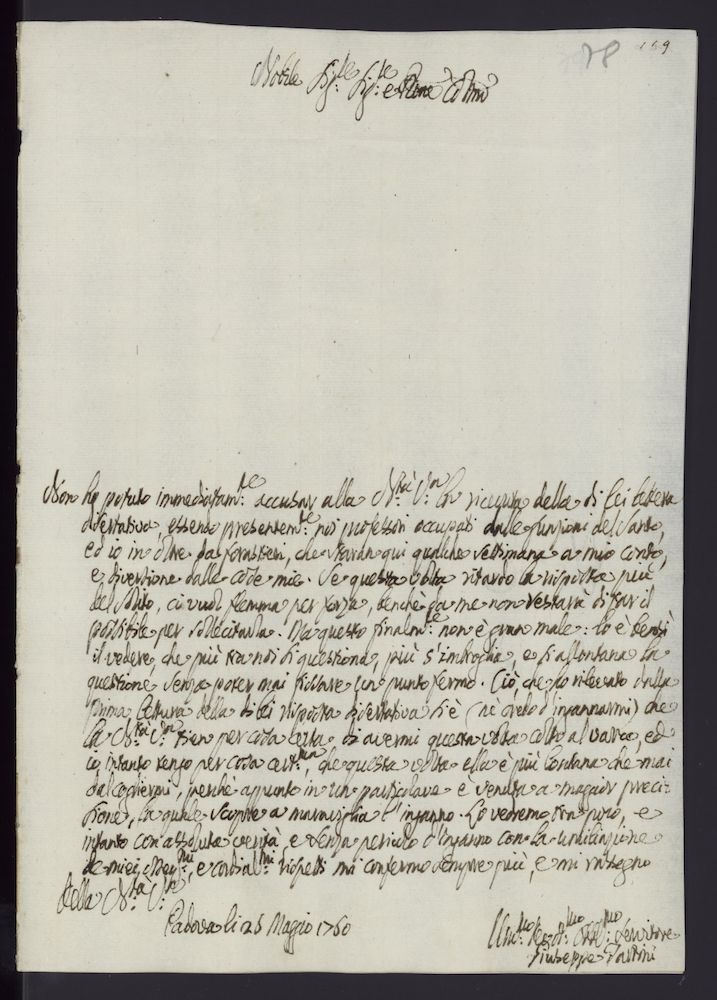 159
78
Nobile Sig:re Sig:re e Pròne Col:mo
Non ho potuto immediatam:te accusar alla N:tà V:ra la ricevuta della di lei lettera
dissertativa, essendo presentem:te noi professori occupati dalle funzioni del Santo,
ed io in oltre da forastieri, che staranno qui qualche settimana a mio conto,
e diversione dalle cose mie. Se questa volta ritardo la risposta più
del solito, ci vuol flemma per forza, benchè da me non restarà di far il
possibile per sollecitarla. Ma questo finalm:te non è gran male: lo è bensì
il vedere, che più tra noi si questiona, più s'imbroglia, e si allontana la
questione senza poter mai fissare un punto fermo. Ciò, che ho rilevato dalla
prima lettura della di lei risposta dissertativa si è (nè credo d'ingannarmi) che
la N:tà V:ra tien per cosa certa di avermi questa volta colto al varco, ed
io intanto tengo per cosa cert:ma, che questa volta ella è più lontana che mai
dal cogliermi, perchè appunto in un particolare è venuta a maggior preci-
sione, la quale scopre a maraviglia l'inganno. Lo vedremo tra poco, e
intanto con assoluta verità, e senza pericolo d'inganno con la umiliazione
de miei osseq:mi, e cordial:mi rispetti mi confermo sempre più, e mi rassegno
della N:tà V:ra
Padova li 25 Maggio 1760
Um:mo Devot:mo Obbl:mo Servitore
Giuseppe Tartini